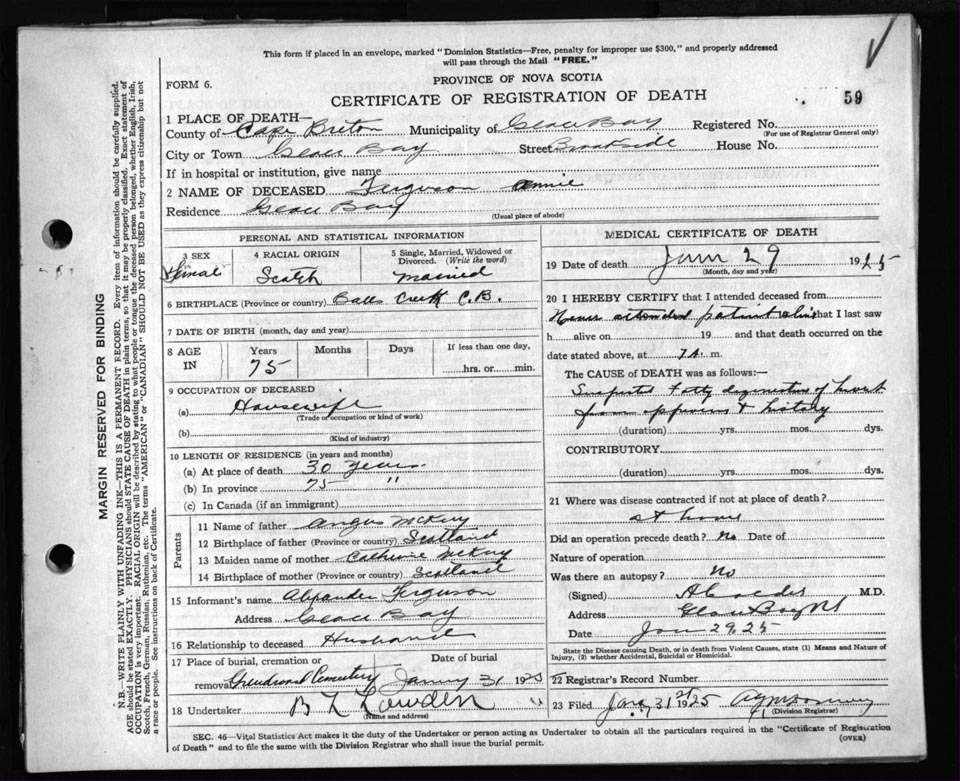 This form if placed in an envelope, marked "Dominion Statistics—Free, penalty for improper use $300," and properly addressed
will pass through the Mail "FREE."
FORM 6.
PROVINCE OF NOVA SCOTIA
CERTIFICATE OF REGISTRATION OF DEATH
59
1 PLACE OF DEATH—
County of Cape Breton Municipality of Glace Bay Registered No.
(For use of Registrar General only)
City or Town Glace Bay Street Brookside House No.
If in hospital or institution, give name
2 NAME OF DECEASED Ferguson Annie
Residence Glace Bay
(Usual place of abode)
PERSONAL AND STATISTICAL INFORMATION
3 SEX
Female
4 RACIAL ORIGIN
Scotch
5 Single, Married, Widowed or
Divorced. (Write the word)
Married
6 BIRTHPLACE (Province or country) Balls Creek C.B.
7 DATE OF BIRTH (month, day and year)
8 AGE
IN
Years
75
Months
Days
If less than one day,
hrs. or min.
9 OCCUPATION OF DECEASED
(a) Housewife
(Trade or occupation or kind of work)
(b)
(Kind of industry)
10 LENGTH OF RESIDENCE (in years and months)
(a) At place of death 30 years
(b) In province 75 "
(c) In Canada (if an immigrant)
Parents
11 Name of father Angus
12 Birthplace of father (Province or country) Scotland
13 Maiden name of mother Catherine
14 Birthplace of mother (Province or country) Scotland
15 Informant's name Alexander Ferguson
Address Glace Bay
16 Relationship to deceased Husband
17 Place of burial, cremation or
removal Greenwood Cemetery
Date of burial
Jany 31 1925
18 Undertaker
(Name and address)
MEDICAL CERTIFICATE OF DEATH
19 Date of death 29 1925
(Month, day and year)
20 I HEREBY CERTIFY that I attended deceased from
Never attended patient alive that I last saw
h alive on 19 and that death occurred on
the date stated above, at m.
The CAUSE of DEATH was as follows:—
Fatty degeneration of heart
from & history
(duration) yrs. mos. dys.
CONTRIBUTORY
(duration) yrs. mos. dys.
21 Where was disease contracted if not at place of death?
at home
Did an operation precede death? No Date of
Nature of operation
Was there an autopsy? No
(Signed) M.D.
Address Glace Bay NS
Date Jan 29, 25
State the Disease causing Death, or in death from Violent Causes, state (1) Means and Nature of
Injury, (2) whether Accidental, Suicidal or Homicidal.
22 Registrar's Record Number
23 Filed Jany 31st 1925
(Division Registrar)
SEC. 46—Vital Statistics Act makes it the duty of the Undertaker or person acting as Undertaker to obtain all the particulars required in the "Certificate of Registration
of Death" and to file the same with the Division Registrar who shall issue the burial permit.
(OVER)
MARGIN RESERVED FOR BINDING
N.B.—WRITE PLAINLY WITH UNFADING INK—THIS IS A PERMANENT RECORD. Every item of information should be carefully supplied.
AGE should be stated EXACTLY. PHYSICIANS should STATE CAUSE OF DEATH in plain terms, so that it may be properly classified. Exact statement of
OCCUPATION is very important. RACIAL ORIGIN will be described by stating to what people or tongue the deceased person belonged, whether English, Irish,
Scotch, French, German, Russian, Ruthenian, etc. The terms "AMERICAN" or "CANADIAN" SHOULD NOT BE USED as they express citizenship but not
a race or people. See instructions on back of Certificate.